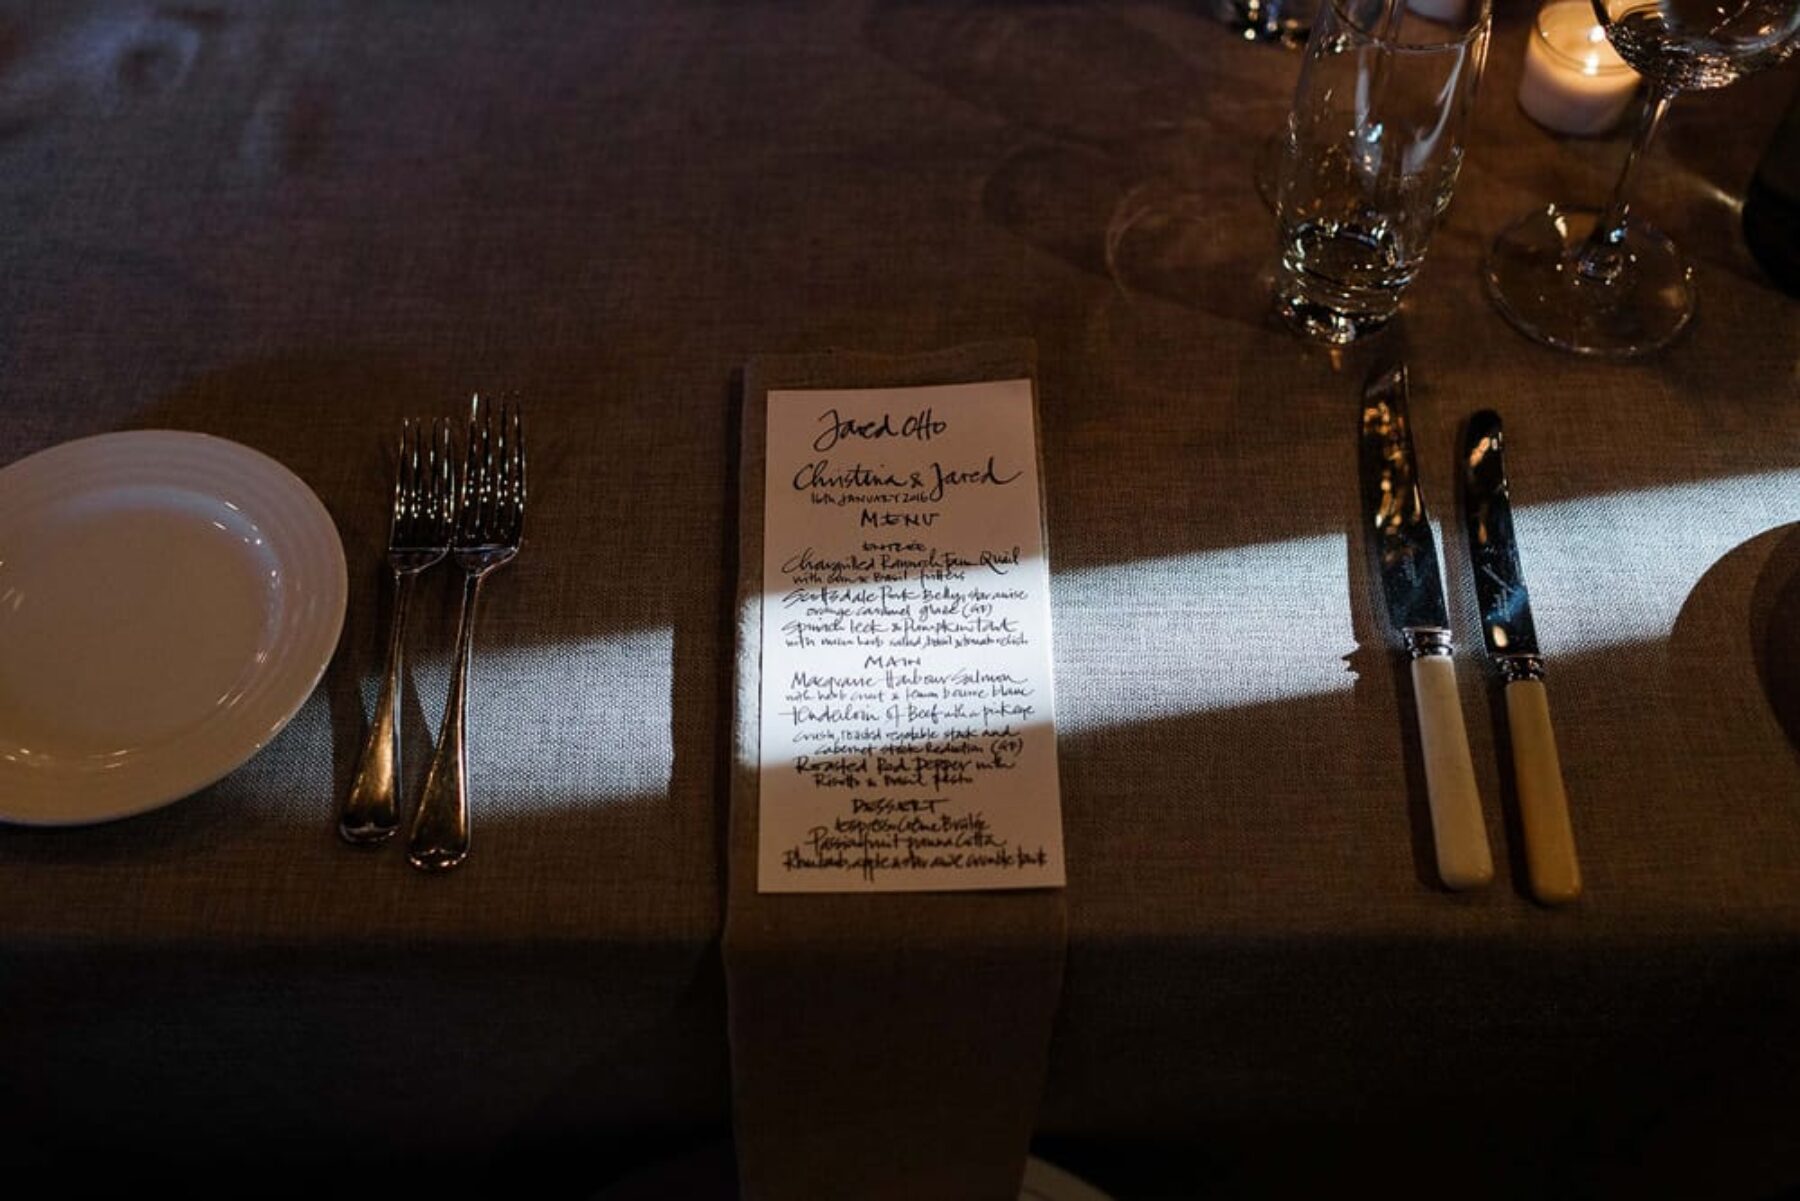 Jared Otto
Christina & Jared
16th JANUARY 2016
MENU
ENTRÉE
Chargrilled Rannoch Farm Quail
with Corn & Basil fritters
Scottsdale Pork Belly, star anise
orange caramel glaze (GF)
Spinach leek & Pumpkin tart
with micro herb salad, basil & tomato relish
MAIN
Macquarie Harbour Salmon
with herb crust & lemon beurre blanc
Tenderloin of Beef with a pinkeye
crush, roasted vegetable stack and
cabernet stock Reduction (GF)
Roasted Red Pepper with
Risotto & Basil pesto
DESSERT
Espresso Crème Brûlée
Passionfruit panna Cotta
Rhubarb, apple & star anise crumble tart